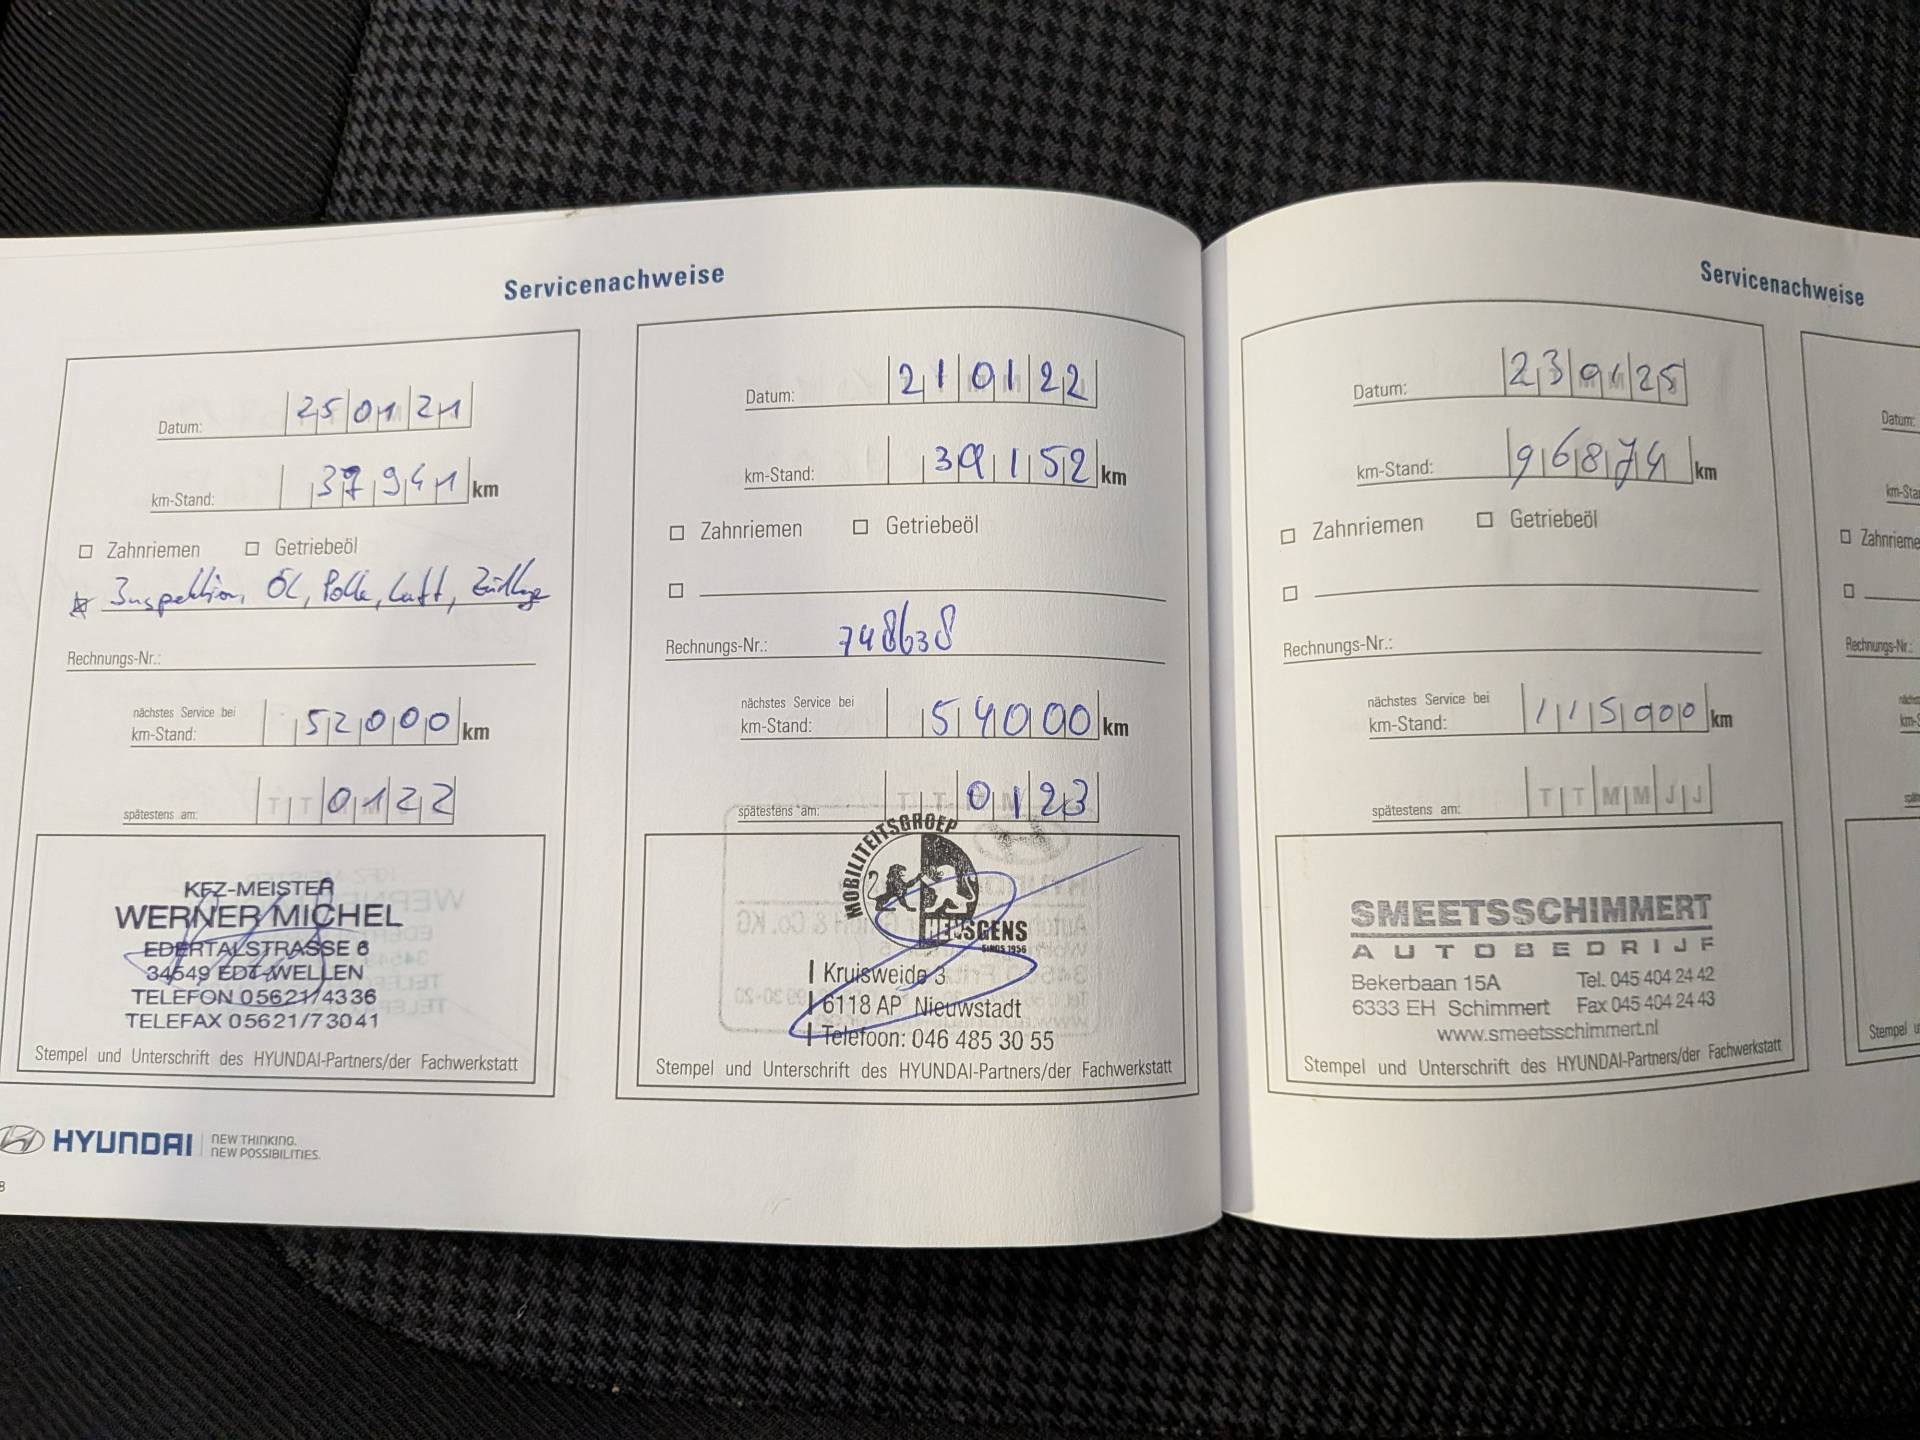 Servicenachweise
Datum: 25 01 21
km-Stand: 37941 km
Zahnriemen Getriebeöl
Inspektion, Öl, Polle, Luft,
Rechnungs-Nr.:
nächstes Service bei
km-Stand: 52000 km
spätestens am: TT 01 22
KFZ-MEISTER
WERNER MICHEL
EDERTALSTRASSE 6
34549 EDT-WELLEN
TELEFON 05621/4336
TELEFAX 05621/73041
Stempel und Unterschrift des HYUNDAI-Partners/der Fachwerkstatt
HYUNDAI NEW THINKING.
NEW POSSIBILITIES.
8
Datum: 21 01 22
km-Stand: 39152 km
Zahnriemen Getriebeöl
Rechnungs-Nr.: 748638
nächstes Service bei
km-Stand: 54000 km
spätestens am: TT 01 23
MOBILITEITSGROEP
SINDS 1956
Kruisweide 3
6118 AP Nieuwstadt
Telefoon: 046 485 30 55
Stempel und Unterschrift des HYUNDAI-Partners/der Fachwerkstatt
Servicenachweise
Datum: 23 01 25
km-Stand: 96874 km
Zahnriemen Getriebeöl
Rechnungs-Nr.:
nächstes Service bei
km-Stand: 115000 km
spätestens am: TTMMJJ
SMEETSSCHIMMERT
AUTOBEDRIJF
Bekerbaan 15A Tel. 045 404 24 42
6333 EH Schimmert Fax 045 404 24 43
www.smeetsschimmert.nl
Stempel und Unterschrift des HYUNDAI-Partners/der Fachwerkstatt
Datum:
km-Sta
Zahnrieme
Rechnungs-Nr.:
Stempel u